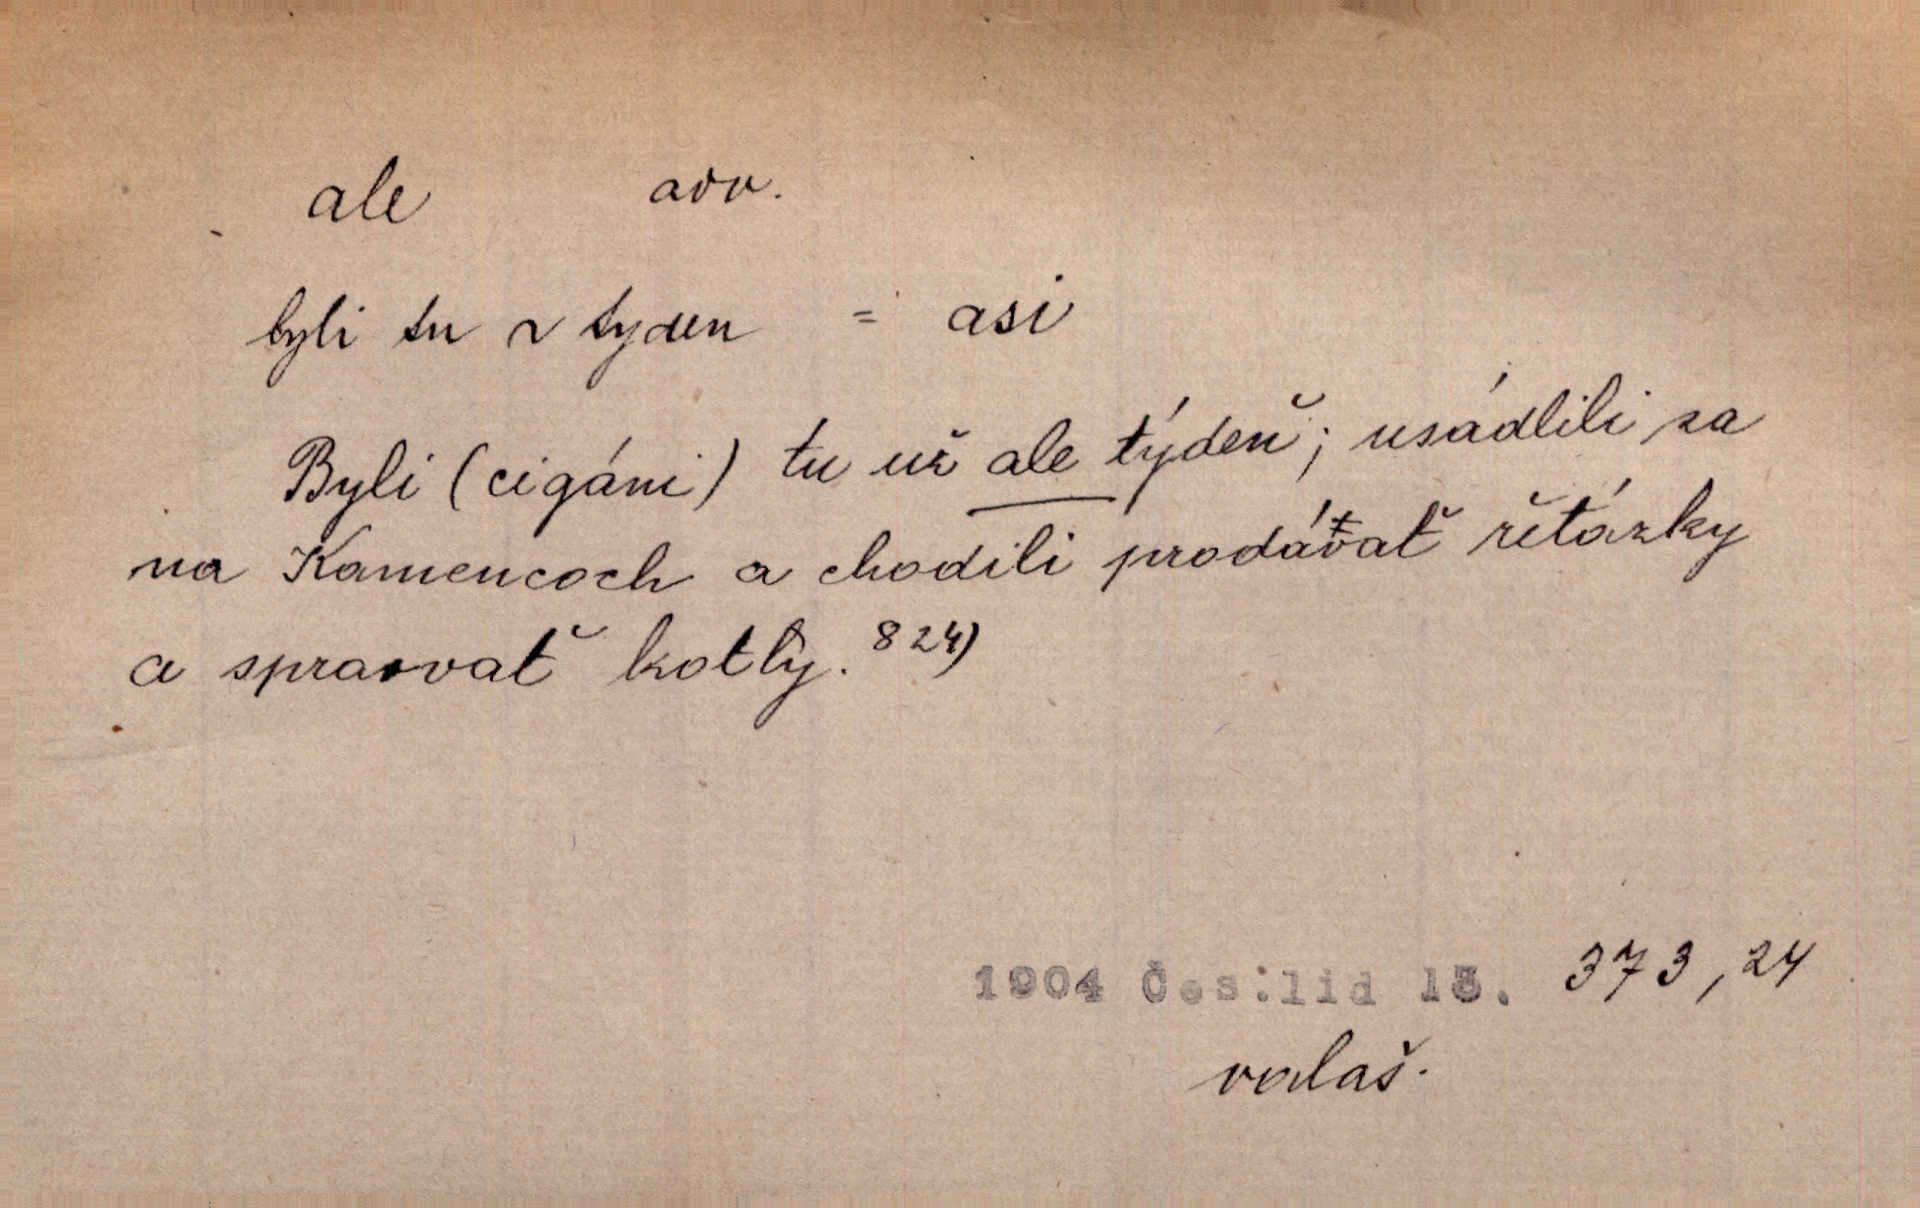 ale adv.
byli tu ~ tyden = asi
Byli (cigáni) tu už ale týdeň; usádlili sa
na Kamencoch a chodili prodávať řetázky
a spravovať kotly. 824)
1904 Čes:lid 13. 373,24
valaš.